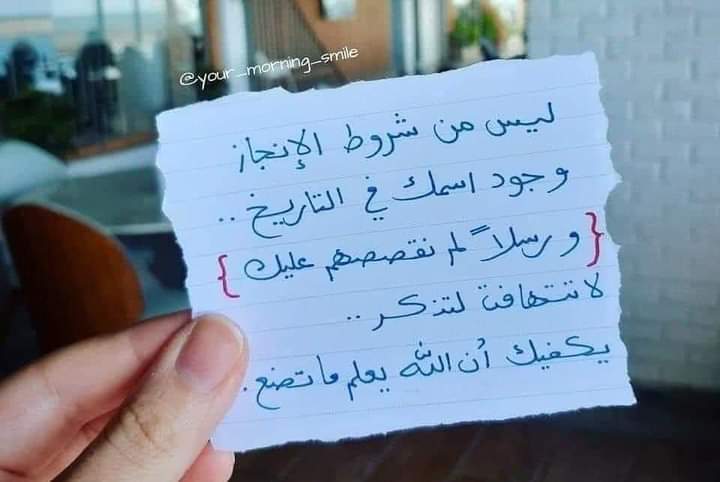 @your_morning_smile
ليس من شروط الإنجاز
وجود اسمك في التاريخ ..
{ ورسلاً لم نقصصهم عليك }
لا تتهافت لتذكر ..
يكفيك أن الله يعلم ما تصنع .